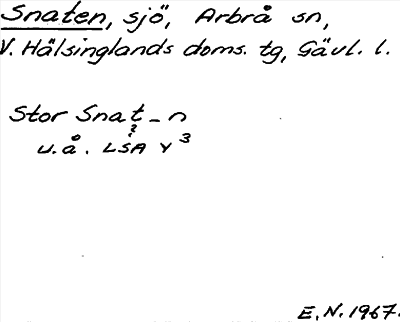 Snaten, sjö, Arbrå sn,
V. Hälsinglands doms. tg, Gävl. l.
Stor Snat_n
u.å. LSA Y3
E.N. 1967.